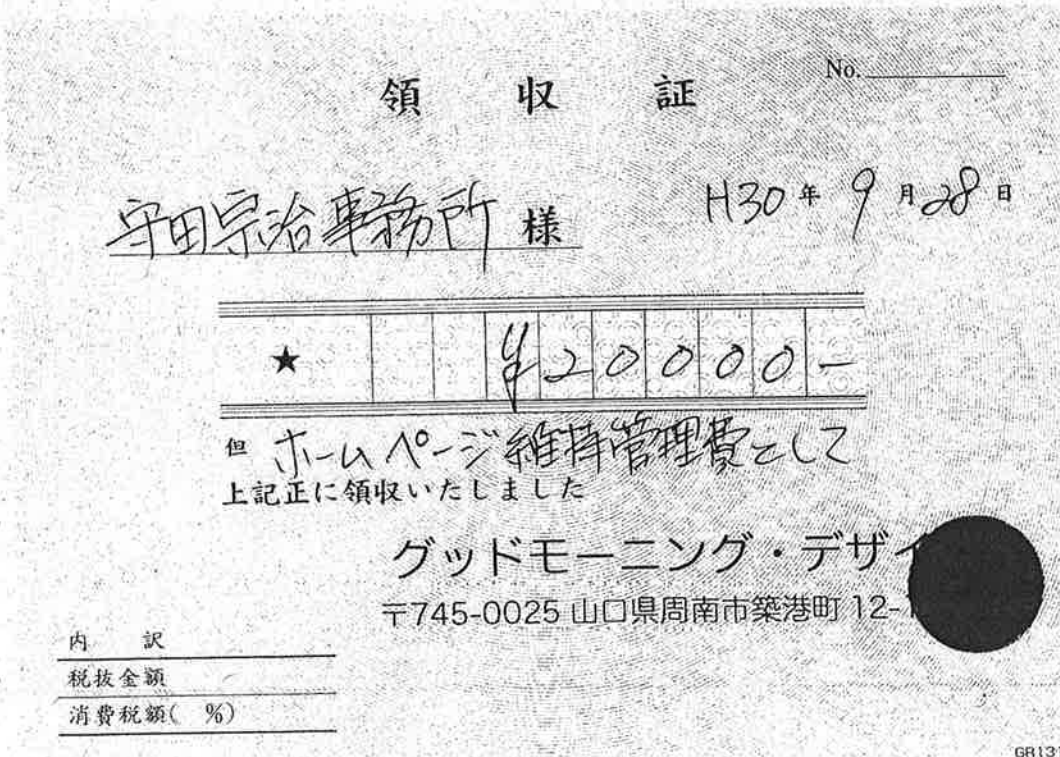 No.
領収証
守田宗治事務所 様
H30年 9月28日
★ ¥20000-
但 ホームページ維持管理費として
上記正に領収いたしました
グッドモーニング・デザイ
〒745-0025 山口県周南市築港町 12-
内訳
税抜金額
消費税額( %)
GR13